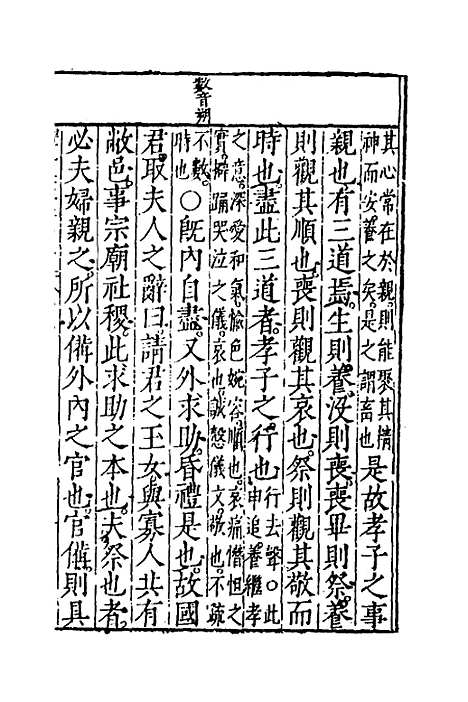 數音朔
其心常在於親則能聚其情
神而安養之矣。是之謂畜也
是故孝子之事
親也有三道焉。生則養沒則喪喪畢則祭。養
則觀其順也。喪則觀其哀也。祭則觀其敬而
時也。盡此三道者。孝子之行也
行去聲〇此
申追養繼孝
之意。深愛和氣愉色婉容。順也。哀痛慘怛之
實。擗踊哭泣之儀。哀也。誠慤儀文。敬也。不疏
不數。
時也
〇旣內自盡。又外求助。昏禮是也。故國
君取夫人之辭曰請君之玉女與寡人共有
敝邑。事宗廟社稷。此求助之本也。夫祭也者。
必夫婦親之。所以備外內之官也。官備則具